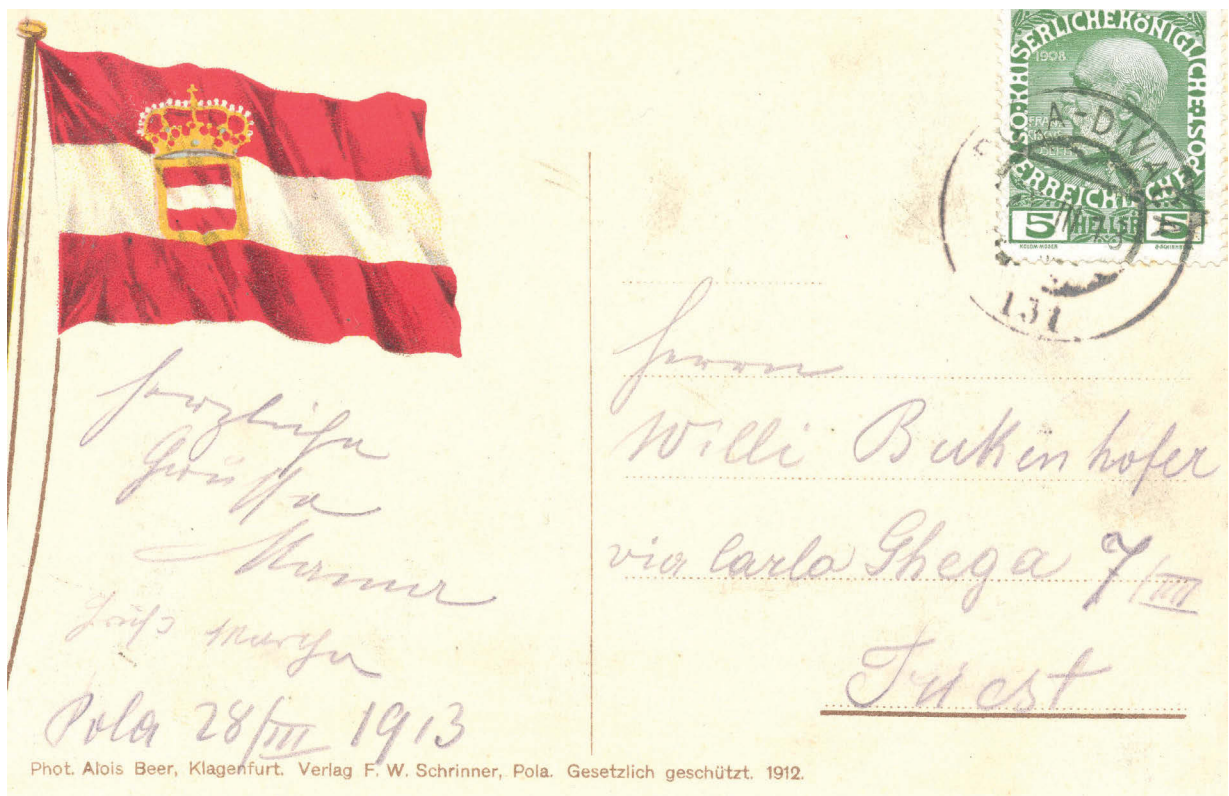 KAISERLICHE KÖNIGLICHE
ÖSTERREICHISCHE POST
1908
5 HELLER 5
KOLOM. MOSER
131
Herzliche
Grüsse
Mama
Gruß
Pola 28/III 1913
Herrn
Willi Bukenhofer
via Carlo Ghega 7/III
Triest
Phot. Alois Beer, Klagenfurt. Verlag F. W. Schrinner, Pola. Gesetzlich geschützt. 1912.